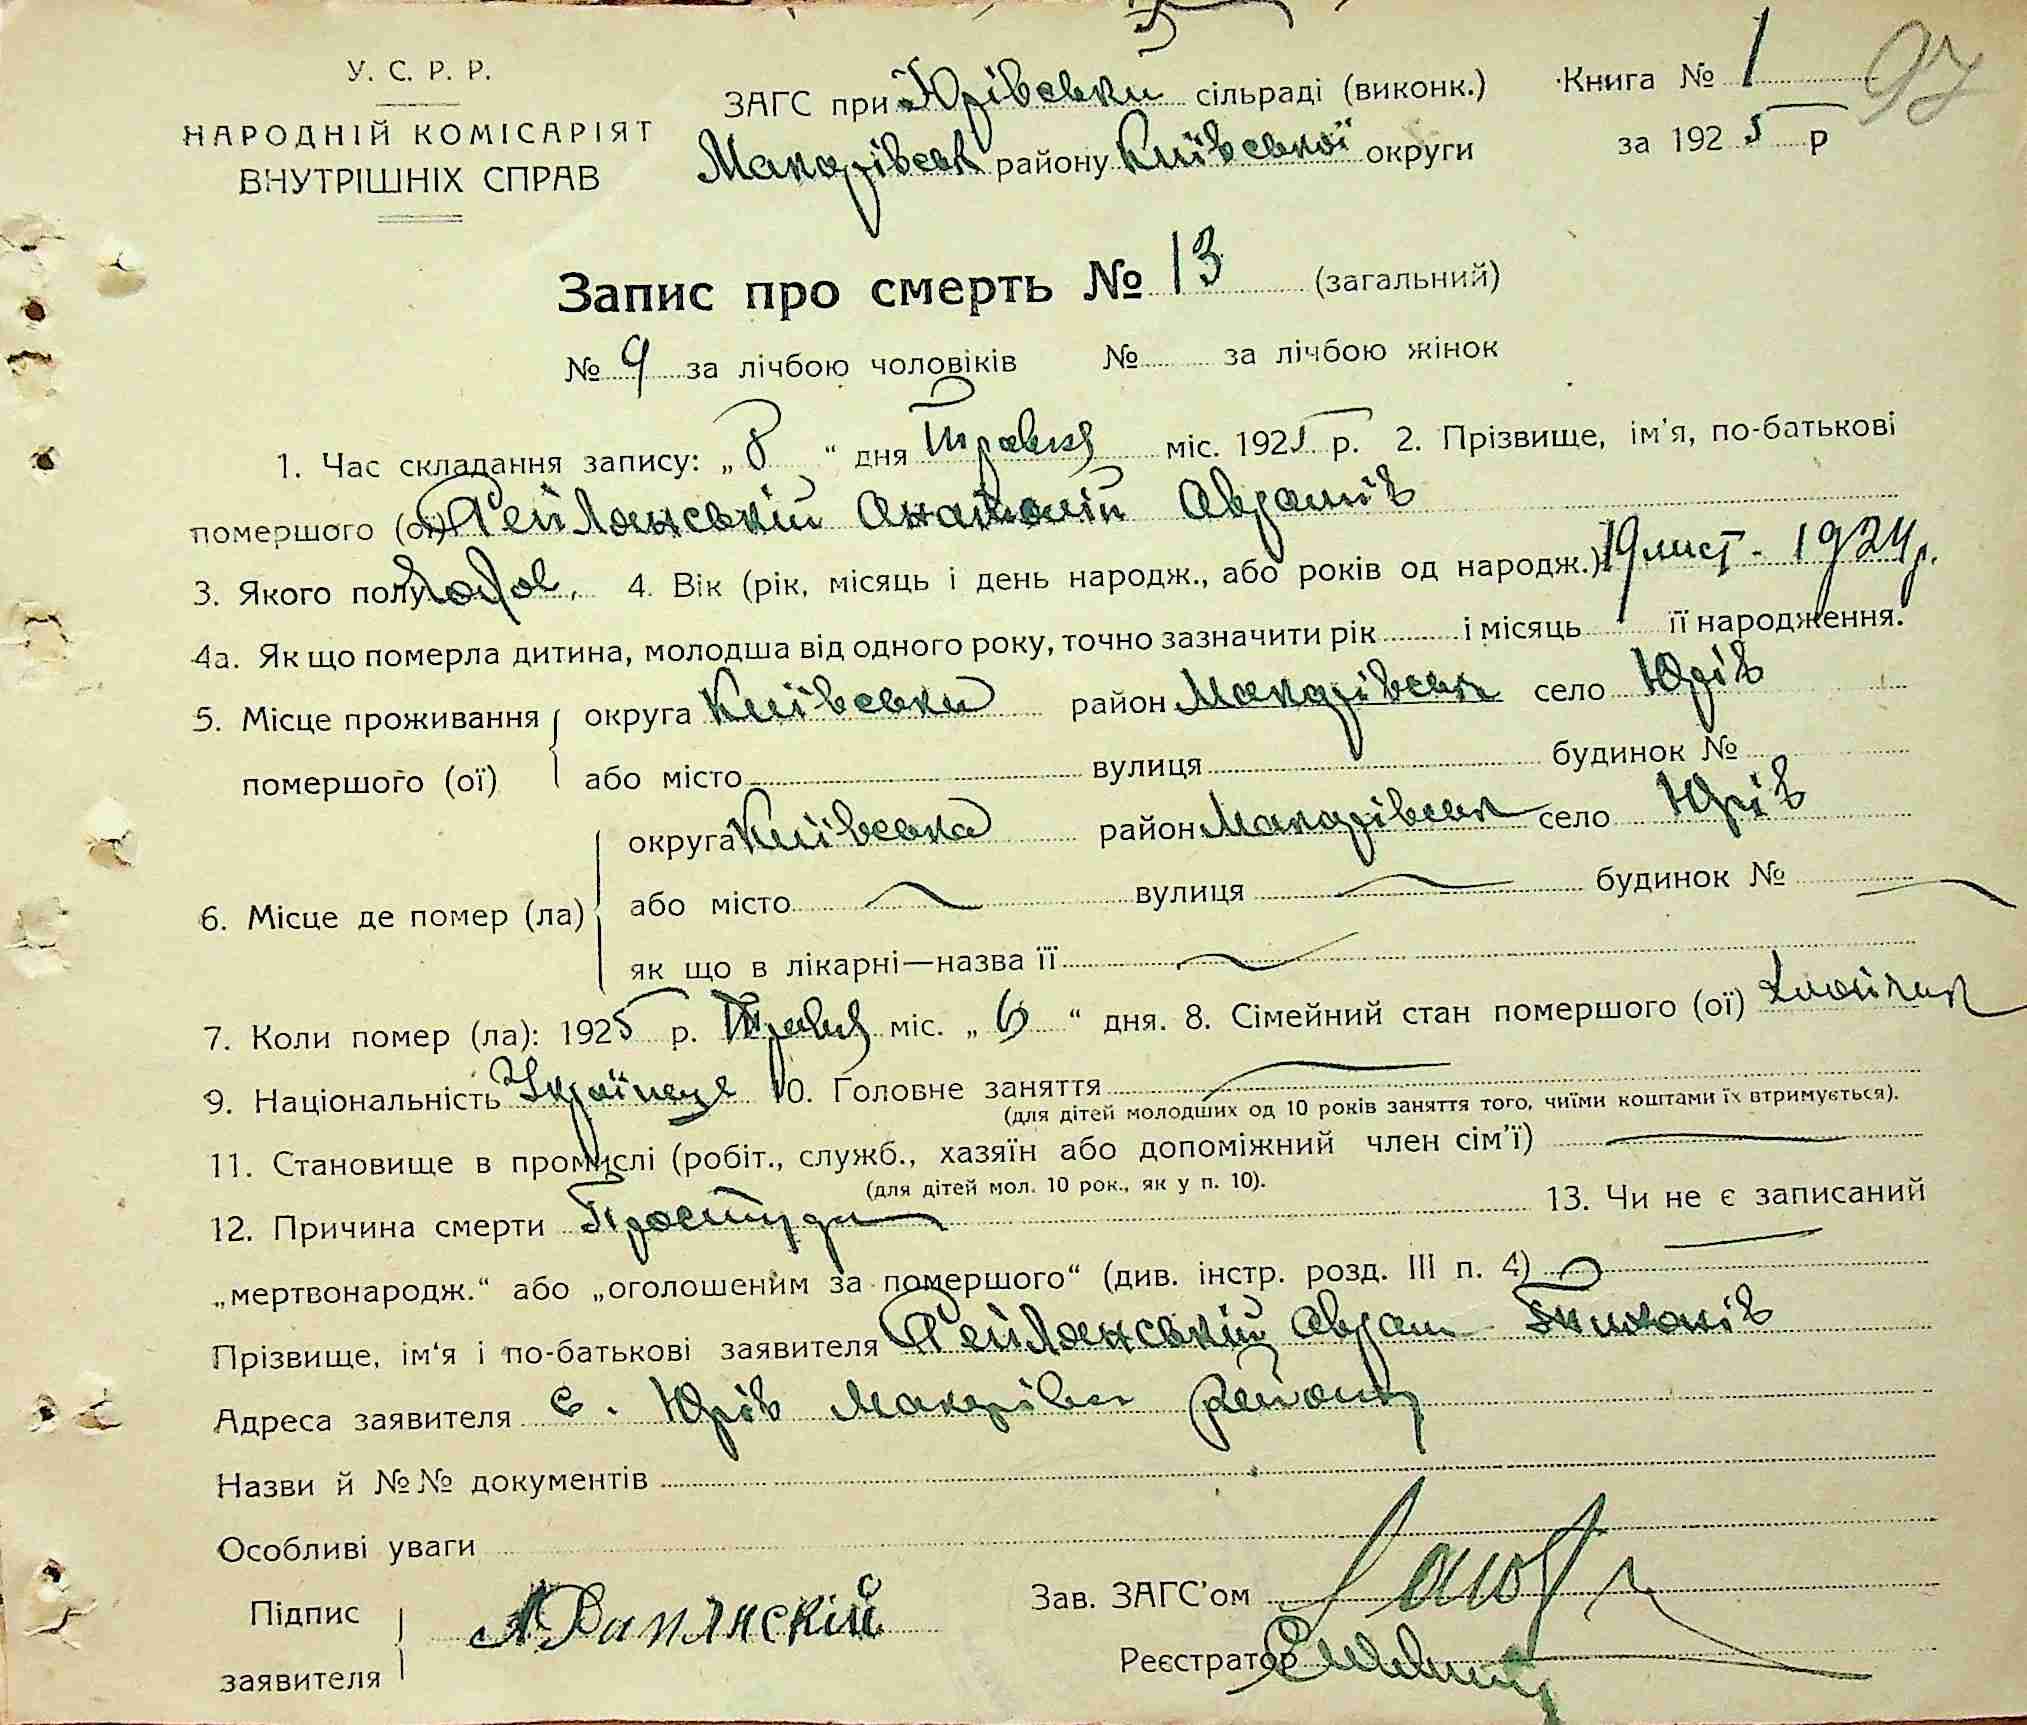 97
У. С. Р. Р.
НАРОДНІЙ КОМІСАРІЯТ
ВНУТРІШНІХ СПРАВ
ЗАГС при Юрівськи сільраді (виконк.)
Макарівськ району Київської округи
Книга № 1
за 1925 р
Запис про смерть № 13 (загальний)
№ 9 за лічбою чоловіків № за лічбою жінок
1. Час складання запису: „8“ дня Травня міс. 1925 р. 2. Прізвище, ім'я, по-батькові
помершого (ої) Анатолій Аврамів
3. Якого полу 4. Вік (рік, місяць і день народж., або років од народж.) 19 лист. 1924 р.
4а. Як що померла дитина, молодша від одного року, точно зазначити рік і місяць її народження.
5. Місце проживання помершого (ої) округа Київськи район Макарівськ село Юрів
або місто вулиця будинок №
6. Місце де помер (ла) округа Київська район Макарівськ село Юрів
або місто вулиця будинок №
як що в лікарні—назва її
7. Коли помер (ла): 1925 р. Травня міс. „6“ дня. 8. Сімейний стан помершого (ої)
9. Національність Українець 10. Головне заняття
(для дітей молодших од 10 років заняття того, чиїми коштами їх втримується).
11. Становище в промислі (робіт., служб., хазяїн або допоміжний член сім'ї)
(для дітей мол. 10 рок., як у п. 10).
12. Причина смерти Простуда 13. Чи не є записаний
„мертвонародж.“ або „оголошеним за помершого“ (див. інстр. розд. III п. 4)
Прізвище, ім'я і по-батькові заявителя Аврам Тихонів
Адреса заявителя с. Юрів Макарівськ району
Назви й №№ документів
Особливі уваги
Підпис заявителя
Зав. ЗАГС'ом
Реєстратор